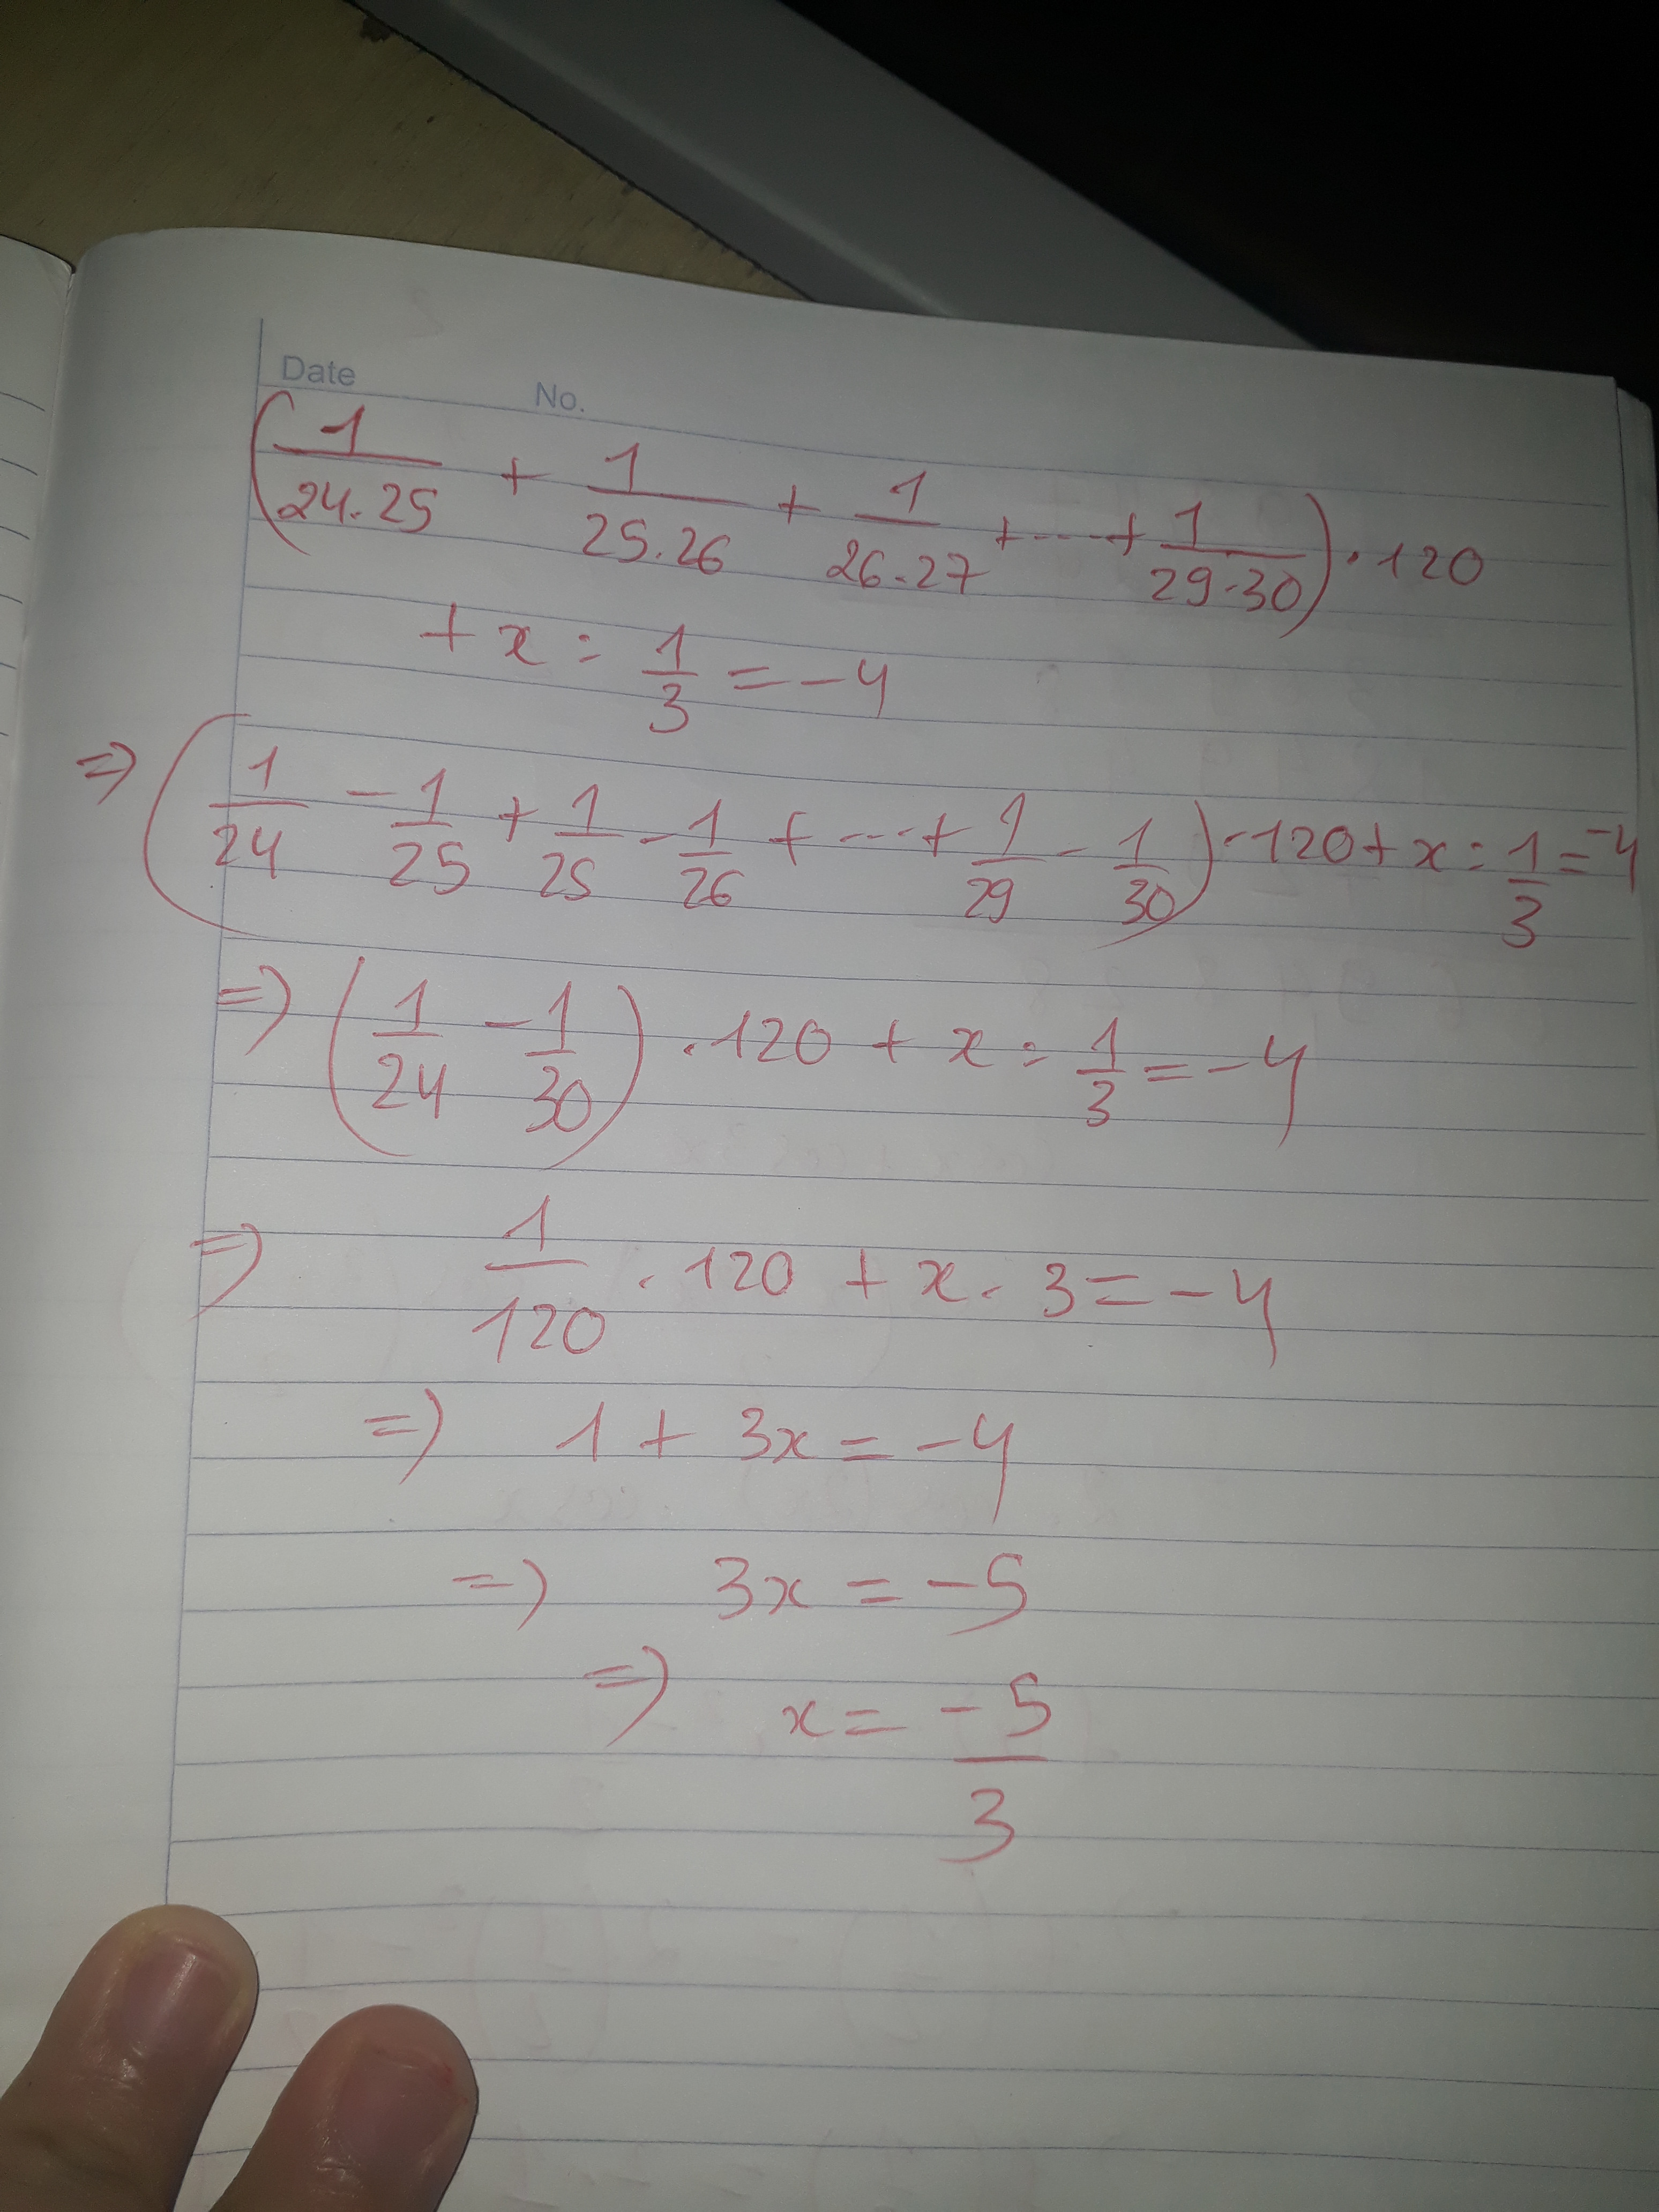 Date No.
(1/24.25 + 1/25.26 + 1/26.27 + ... + 1/29.30) . 120
+ x : 1/3 = -4
=> (1/24 - 1/25 + 1/25 - 1/26 + ... + 1/29 - 1/30) . 120 + x : 1/3 = -4
=> (1/24 - 1/30) . 120 + x : 1/3 = -4
=> 1/120 . 120 + x . 3 = -4
=> 1 + 3x = -4
=> 3x = -5
=> x = -5/3